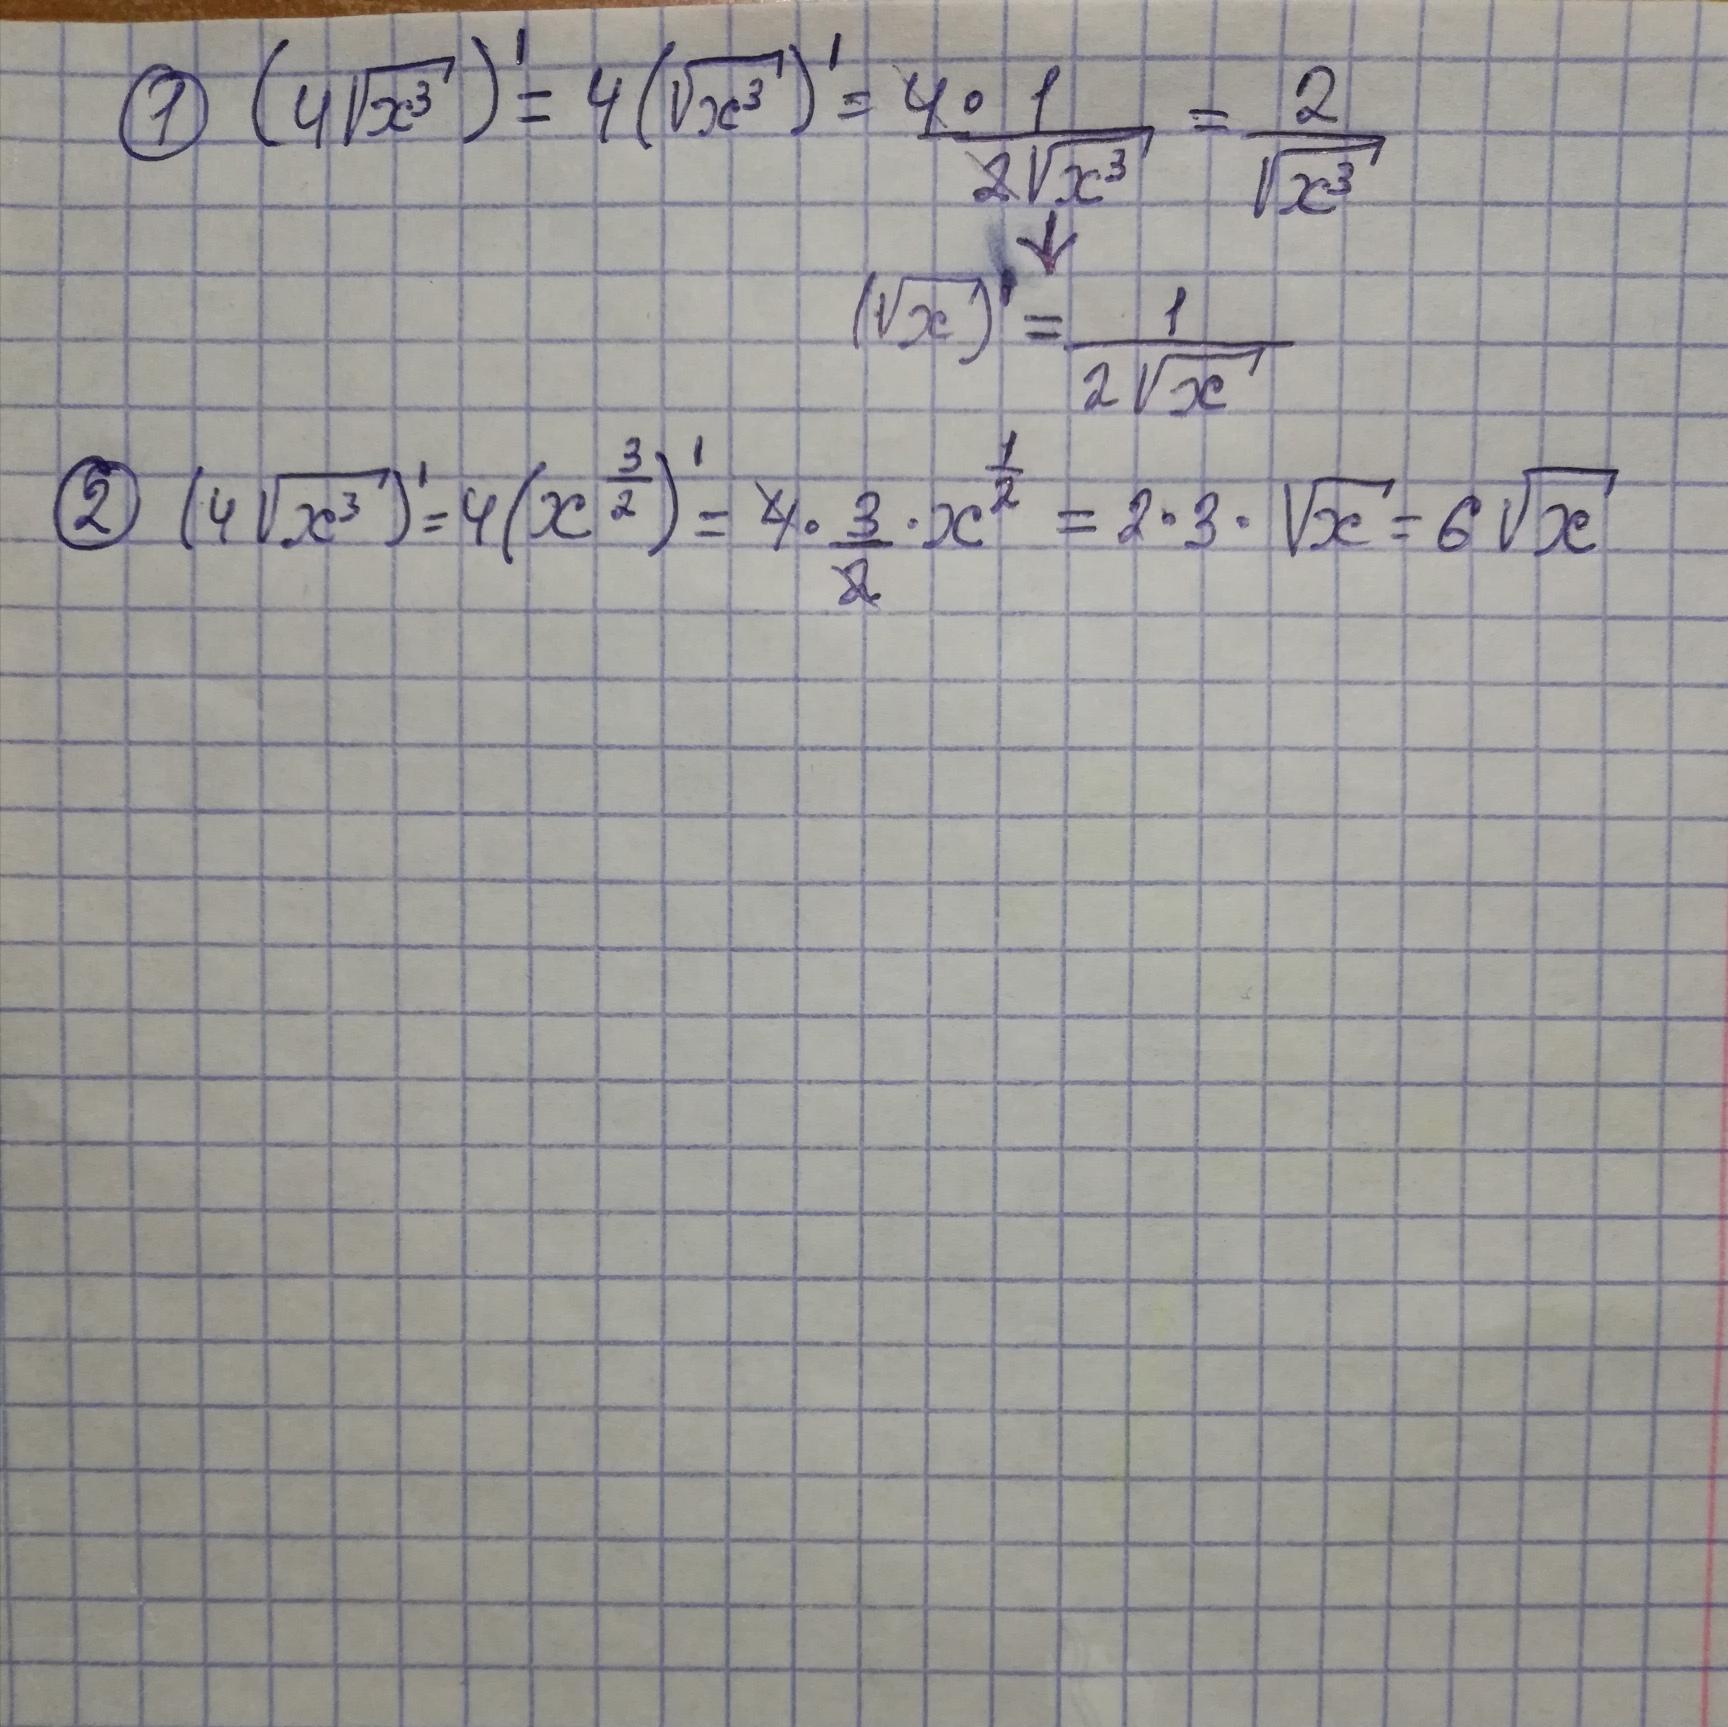 ① (4√x³)' = 4(√x³)' = 4·1/2√x³ = 2/√x³
↓
(√x)' = 1/2√x
② (4√x³)' = 4(x^3/2)' = 4·3/2·x^1/2 = 2·3·√x = 6√x